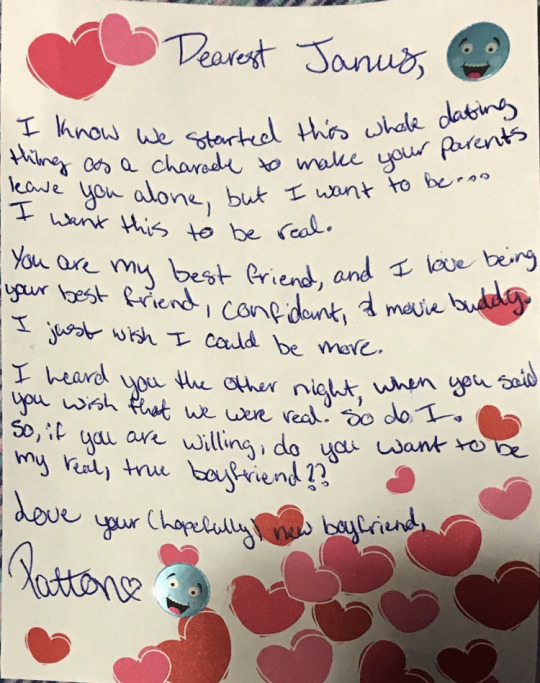 Dearest Janus,
I know we started this whole dating
thing as a charade to make your parents
leave you alone, but I want to be...
I want this to be real.
You are my best friend, and I love being
your best friend, confidant, & movie buddy.
I just wish I could be more.
I heard you the other night, when you said
you wish that we were real. So do I.
So, if you are willing, do you want to be
my real, true boyfriend??
Love your (hopefully) new boyfriend,
Patton♡